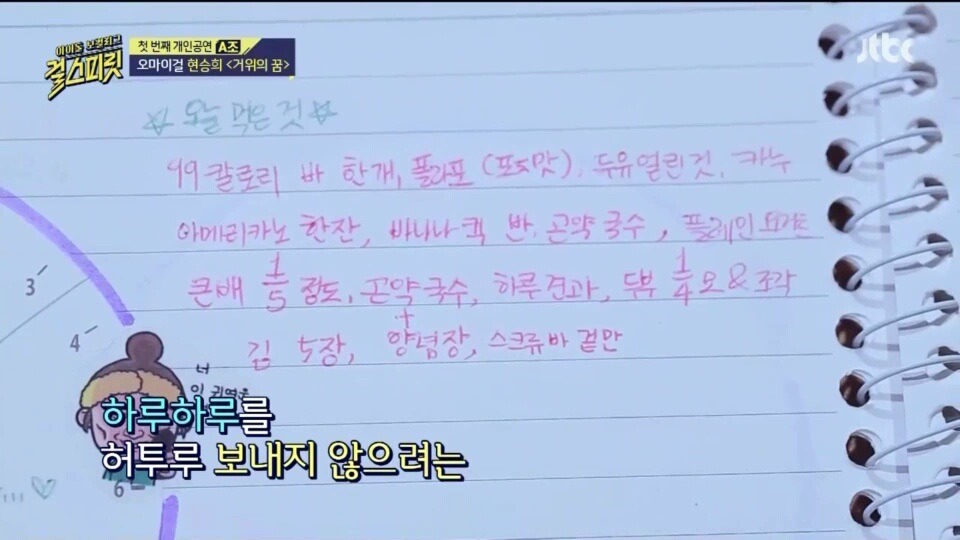 아이돌 보컬리그
걸스피릿
첫 번째 개인공연 A조
오마이걸 현승희 <거위의 꿈>
jtbc
☆ 오늘 먹은 것 ☆
99칼로리 바 한개, 플라포 (포도맛), 두유 열린것, 카누
아메리카노 한잔, 바나나 킥 반, 곤약국수, 플레인 요거트
큰배 1/5 정도, 곤약국수, 하루견과, 두부 1/4 오&조각
김 5장, + 양념장, 스크류바 겉만
3
4
너
하루하루를
허투루 보내지 않으려는
6